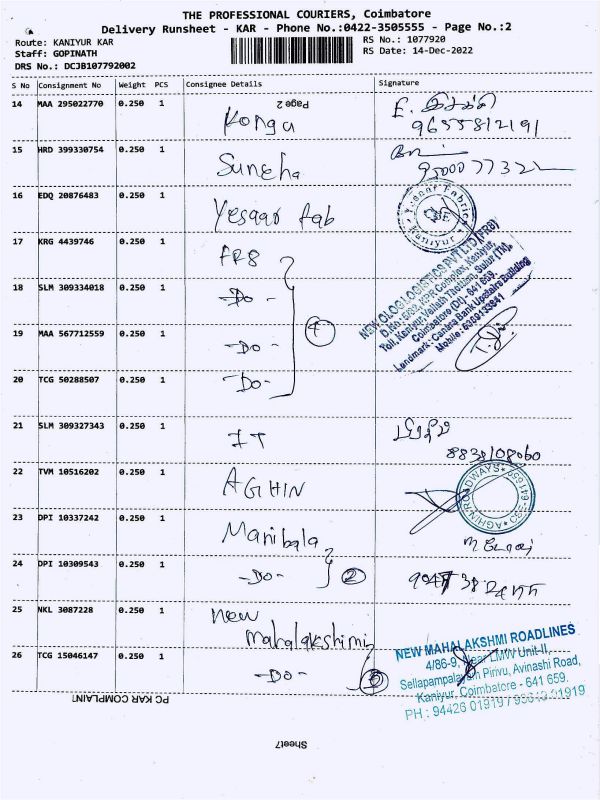 THE PROFESSIONAL COURIERS, Coimbatore
Delivery Runsheet - KAR - Phone No.:0422-3505555 - Page No.:2
Route: KANIYUR KAR
RS No.: 1077920
Staff: GOPINATH
RS Date: 14-Dec-2022
DRS No.: DCJB107792002
S No Consignment No Weight PCS Consignee Details Signature
Page 2
14 MAA 295022770 0.250 1 Konga E.
9655812191
15 HRD 399330754 0.250 1 Suneha
16 EDQ 20876483 0.250 1 Yesaar Fab
Yesaar Fabric
Kaniyur
17 KRG 4439746 0.250 1 FRB
18 SLM 309334018 0.250 1 -Do-
19 MAA 567712559 0.250 1 -Do- 4
20 TCG 50288507 0.250 1 -Do-
NEW OLOGI LOGISTICS PVT LTD (FRB)
D.No. KPR Complex, Kaniyur,
Toll, Kaniyur, Thottam, Sulur (TK),
Coimbatore (Dt) - 641 659.
Landmark: Canara Bank Upstairs Building
Mobile:
21 SLM 309327343 0.250 1 IT
8838108060
22 TVM 10516202 0.250 1 AGHIN
AGHIN ROADWAYS
23 DPI 10337242 0.250 1 Manibala
24 DPI 10309543 0.250 1 -Do- 2
25 NKL 3087228 0.250 1 New
Mahalakshimi
26 TCG 15046147 0.250 1 -Do-
NEW MAHALAKSHMI ROADLINES
4/86-9, Near LMW Unit-II,
Sellapampalayam Pirivu, Avinashi Road,
Kaniyur, Coimbatore - 641 659.
PH : 94426 01919 /
PC KAR COMPLAINT
Sheet7